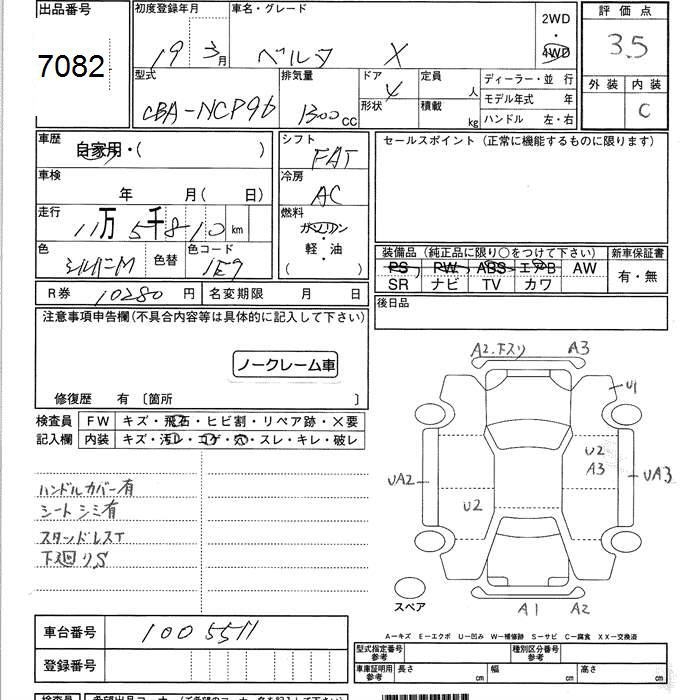 出品番号
7082
初度登録年月
19 3月
車名・グレード
ベルタ X
2WD
・
4WD
評価点
3.5
型式
CBA-NCP96
排気量
1300cc
ドア 4
形状
定員 人
積載 kg
ディーラー・並 行
モデル年式 年
ハンドル 左・右
外装 内装
C
車歴
自家用・( )
シフト
FAT
セールスポイント (正常に機能するものに限ります)
車検
年 月( 日)
冷房
AC
走行
11万5千810km
燃料
ガソリン
・
軽・油
( )
色
シルバーM
色替
色コード
1E7
装備品 (純正品に限り○をつけて下さい)
新車保証書
PS PW ABS エアB AW
SR ナビ TV カワ
有・無
R券 10280円
名変期限 月 日
後日品
注意事項申告欄(不具合内容等は具体的に記入して下さい)
ノークレーム車
修復歴 有 〔箇所 〕
検査員
記入欄
FW キズ・飛石・ヒビ割・リペア跡・×要
内装 キズ・汚レ・コゲ・穴・スレ・キレ・破レ
ハンドルカバー有
シートシミ有
スタッドレスT
下廻りS
A2.下スリ A3
U1
U2
A3
UA2
UA3
U2
A1 A2
スペア
車台番号 1005511
登録番号
A-キズ E-エクボ U-凹み W-補修跡 S-サビ C-腐食 XX-交換済
型式指定番号
参考
種別区分番号
参考
車庫証明用
参考
長さ cm
幅 cm
高さ cm
検査員
希望出品コーナー